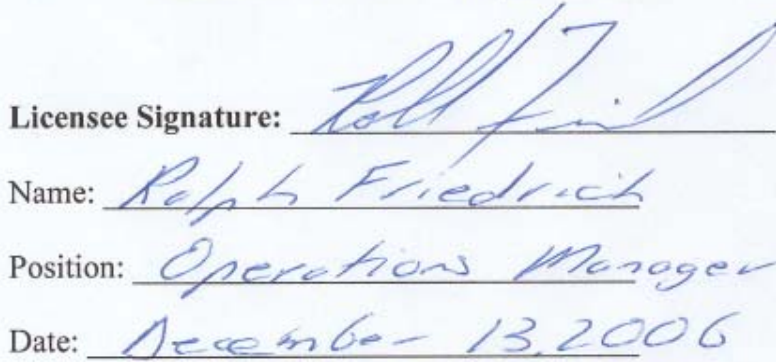 Licensee Signature:
Name: Ralph Friedrich
Position: Operations Manager
Date: December 13, 2006